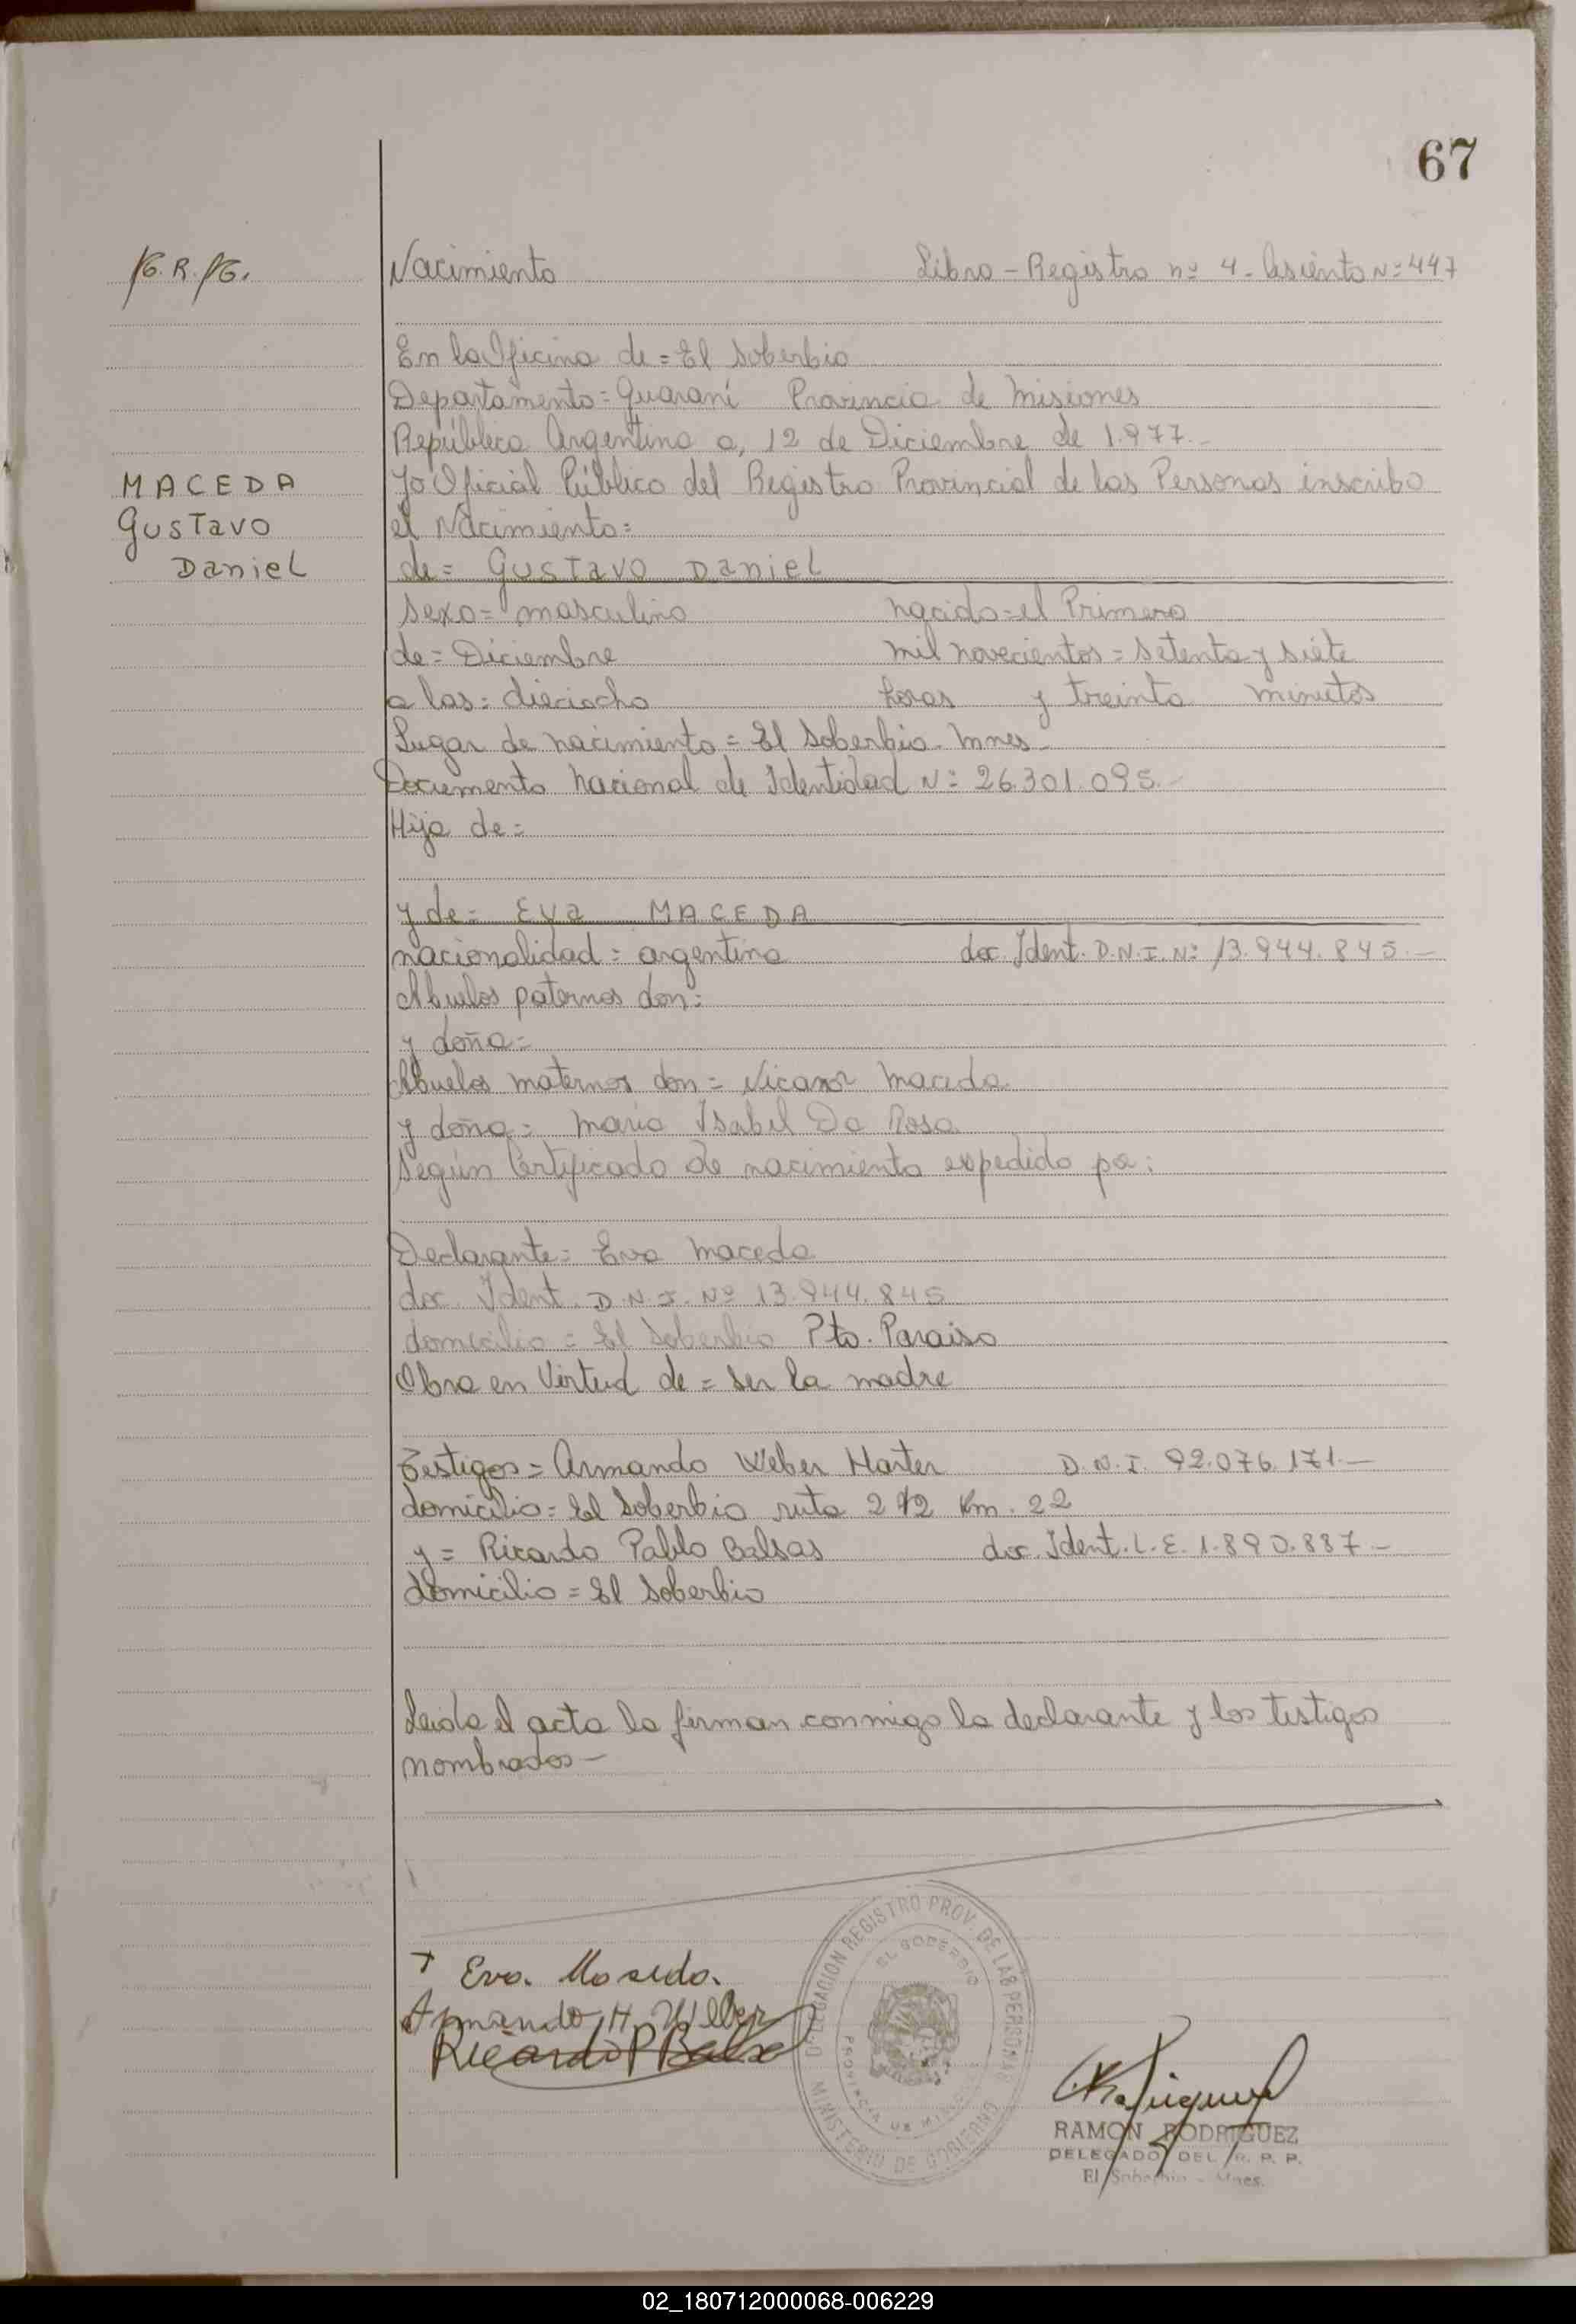 67
Nacimiento Libro - Registro nº 4 - Asiento Nº 447
En la Oficina de = El Soberbio
Departamento = Guaraní Provincia de Misiones
República Argentina a, 12 de Diciembre de 1.977.-
MACEDA
Yo Oficial Público del Registro Provincial de las Personas inscribo
Gustavo
el Nacimiento =
Daniel
de = Gustavo Daniel
sexo = masculino nacido = el Primero
de = Diciembre mil novecientos = setenta y siete
a las = dieciocho horas y treinta minutos
Lugar de nacimiento = El Soberbio - Mnes -
Documento Nacional de Identidad Nº 26.301.095.-
Hijo de =
y de = Eva MACEDA
nacionalidad = argentina doc. Ident. D.N.I. Nº 13.944.845.-
Abuelos paternos don =
y doña =
Abuelos maternos don = Nicanor Maceda
y doña = Maria Isabel Da Rosa
Según Certificado de nacimiento expedido por :
Declarante = Eva Maceda
doc. Ident. D.N.I. Nº 13.944.845
domicilio = El Soberbio Pto. Paraiso
Obra en Virtud de = ser la madre
Testigos = Armando Weber Harter D.N.I. 92.076.171.-
domicilio = El Soberbio ruta 212 Km. 22
y = Ricardo Pablo Balsas doc. Ident. L.E. 1.890.887.-
domicilio = El Soberbio
Leida el acta la firman conmigo la declarante y los testigos
nombrados -
Eva. Maceda.
Armando H. Weber
Ricardo P Balsa
DELEGACION REGISTRO PROV. DE LAS PERSONAS
EL SOBERBIO
PROVINCIA DE MISIONES
MINISTERIO DE GOBIERNO
RAMON RODRIGUEZ
DELEGADO DEL R. P. P.
El Soberbio - Mnes.
02_180712000068-006229